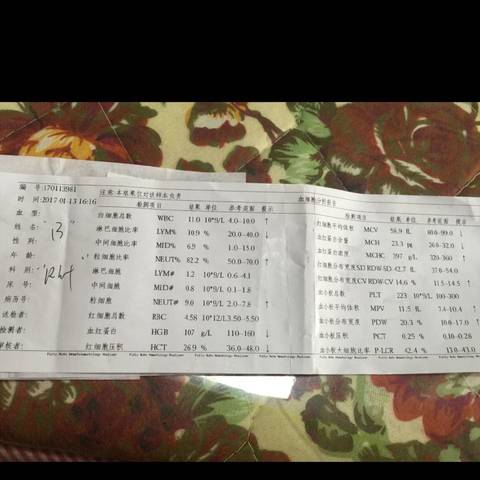 编 号:170113981
时 间:2017-01-13 16:16
血型:
姓名: "B
性别:
年龄:
科别: "Rh+
床号:
病历号:
送检者:
检测者:
审核者:
注意:本结果仅对该样本负责
检测项目 结果 单位 参考范围 提示
白细胞总数 WBC 11.0 10^9/L 4.0-10.0 ↑
淋巴细胞比率 LYM% 10.9 % 20.0-40.0 ↓
中间细胞比率 MID% 6.9 % 1.0-15.0
粒细胞比率 NEUT% 82.2 % 50.0-70.0 ↑
淋巴细胞 LYM# 1.2 10^9/L 0.6-4.1
中间细胞 MID# 0.8 10^9/L 0.1-1.8
粒细胞 NEUT# 9.0 10^9/L 2.0-7.8 ↑
红细胞总数 RBC 4.58 10^12/L 3.50-5.50
血红蛋白 HGB 107 g/L 110-160 ↓
红细胞压积 HCT 26.9 % 36.0-48.0 ↓
Fully Auto Hematology Analyzer
血细胞分析报告
检测项目 结果 单位 参考范围 提示
红细胞平均体积 MCV 58.9 fL 80.0-99.0 ↓
平均血红蛋白含量 MCH 23.3 pg 26.0-32.0 ↓
MCHC 397 g/L 320-360 ↑
红细胞分布宽度SD RDW-SD 42.7 fL 37.0-54.0
红细胞分布宽度CV RDW-CV 14.6 % 11.5-14.5 ↑
血小板总数 PLT 223 10^9/L 100-300
血小板平均体积 MPV 11.5 fL 7.4-10.4 ↑
血小板分布宽度 PDW 20.3 % 10.0-17.0 ↑
血小板压积 PCT 0.25 % 0.10-0.28
血小板大细胞比率 P-LCR 42.4 % 13.0-43.0
Fully Auto Hematology Analyzer